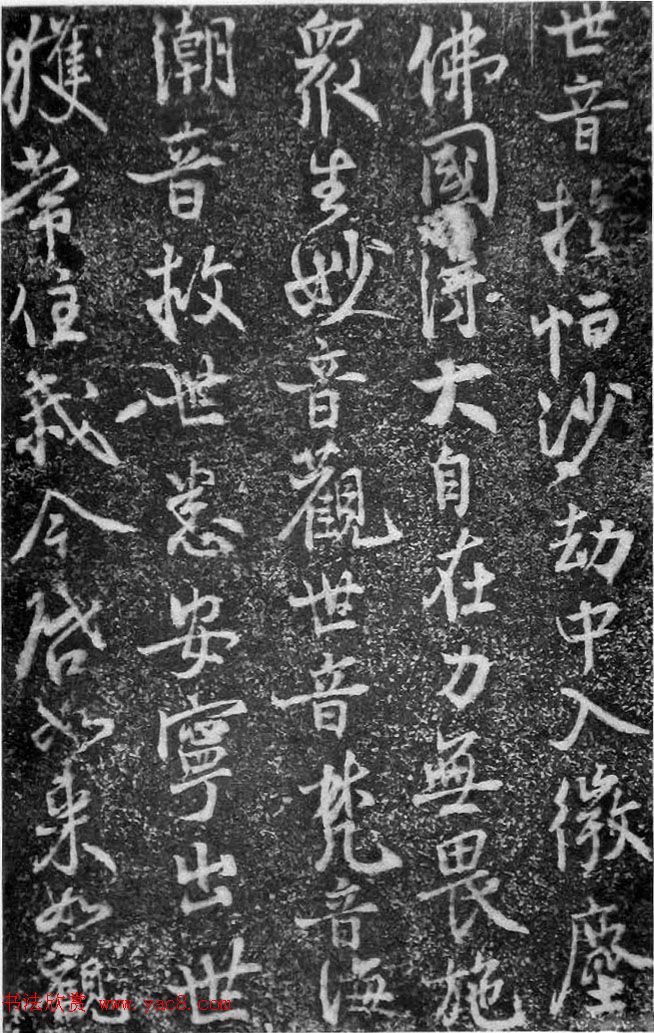 世音於恒沙劫中入微塵
佛國得大自在力無畏施
眾生妙音觀世音梵音海
潮音救世悉安寧出世
獲常住我今啓如来如觀
书法欣赏 www.yac8.com